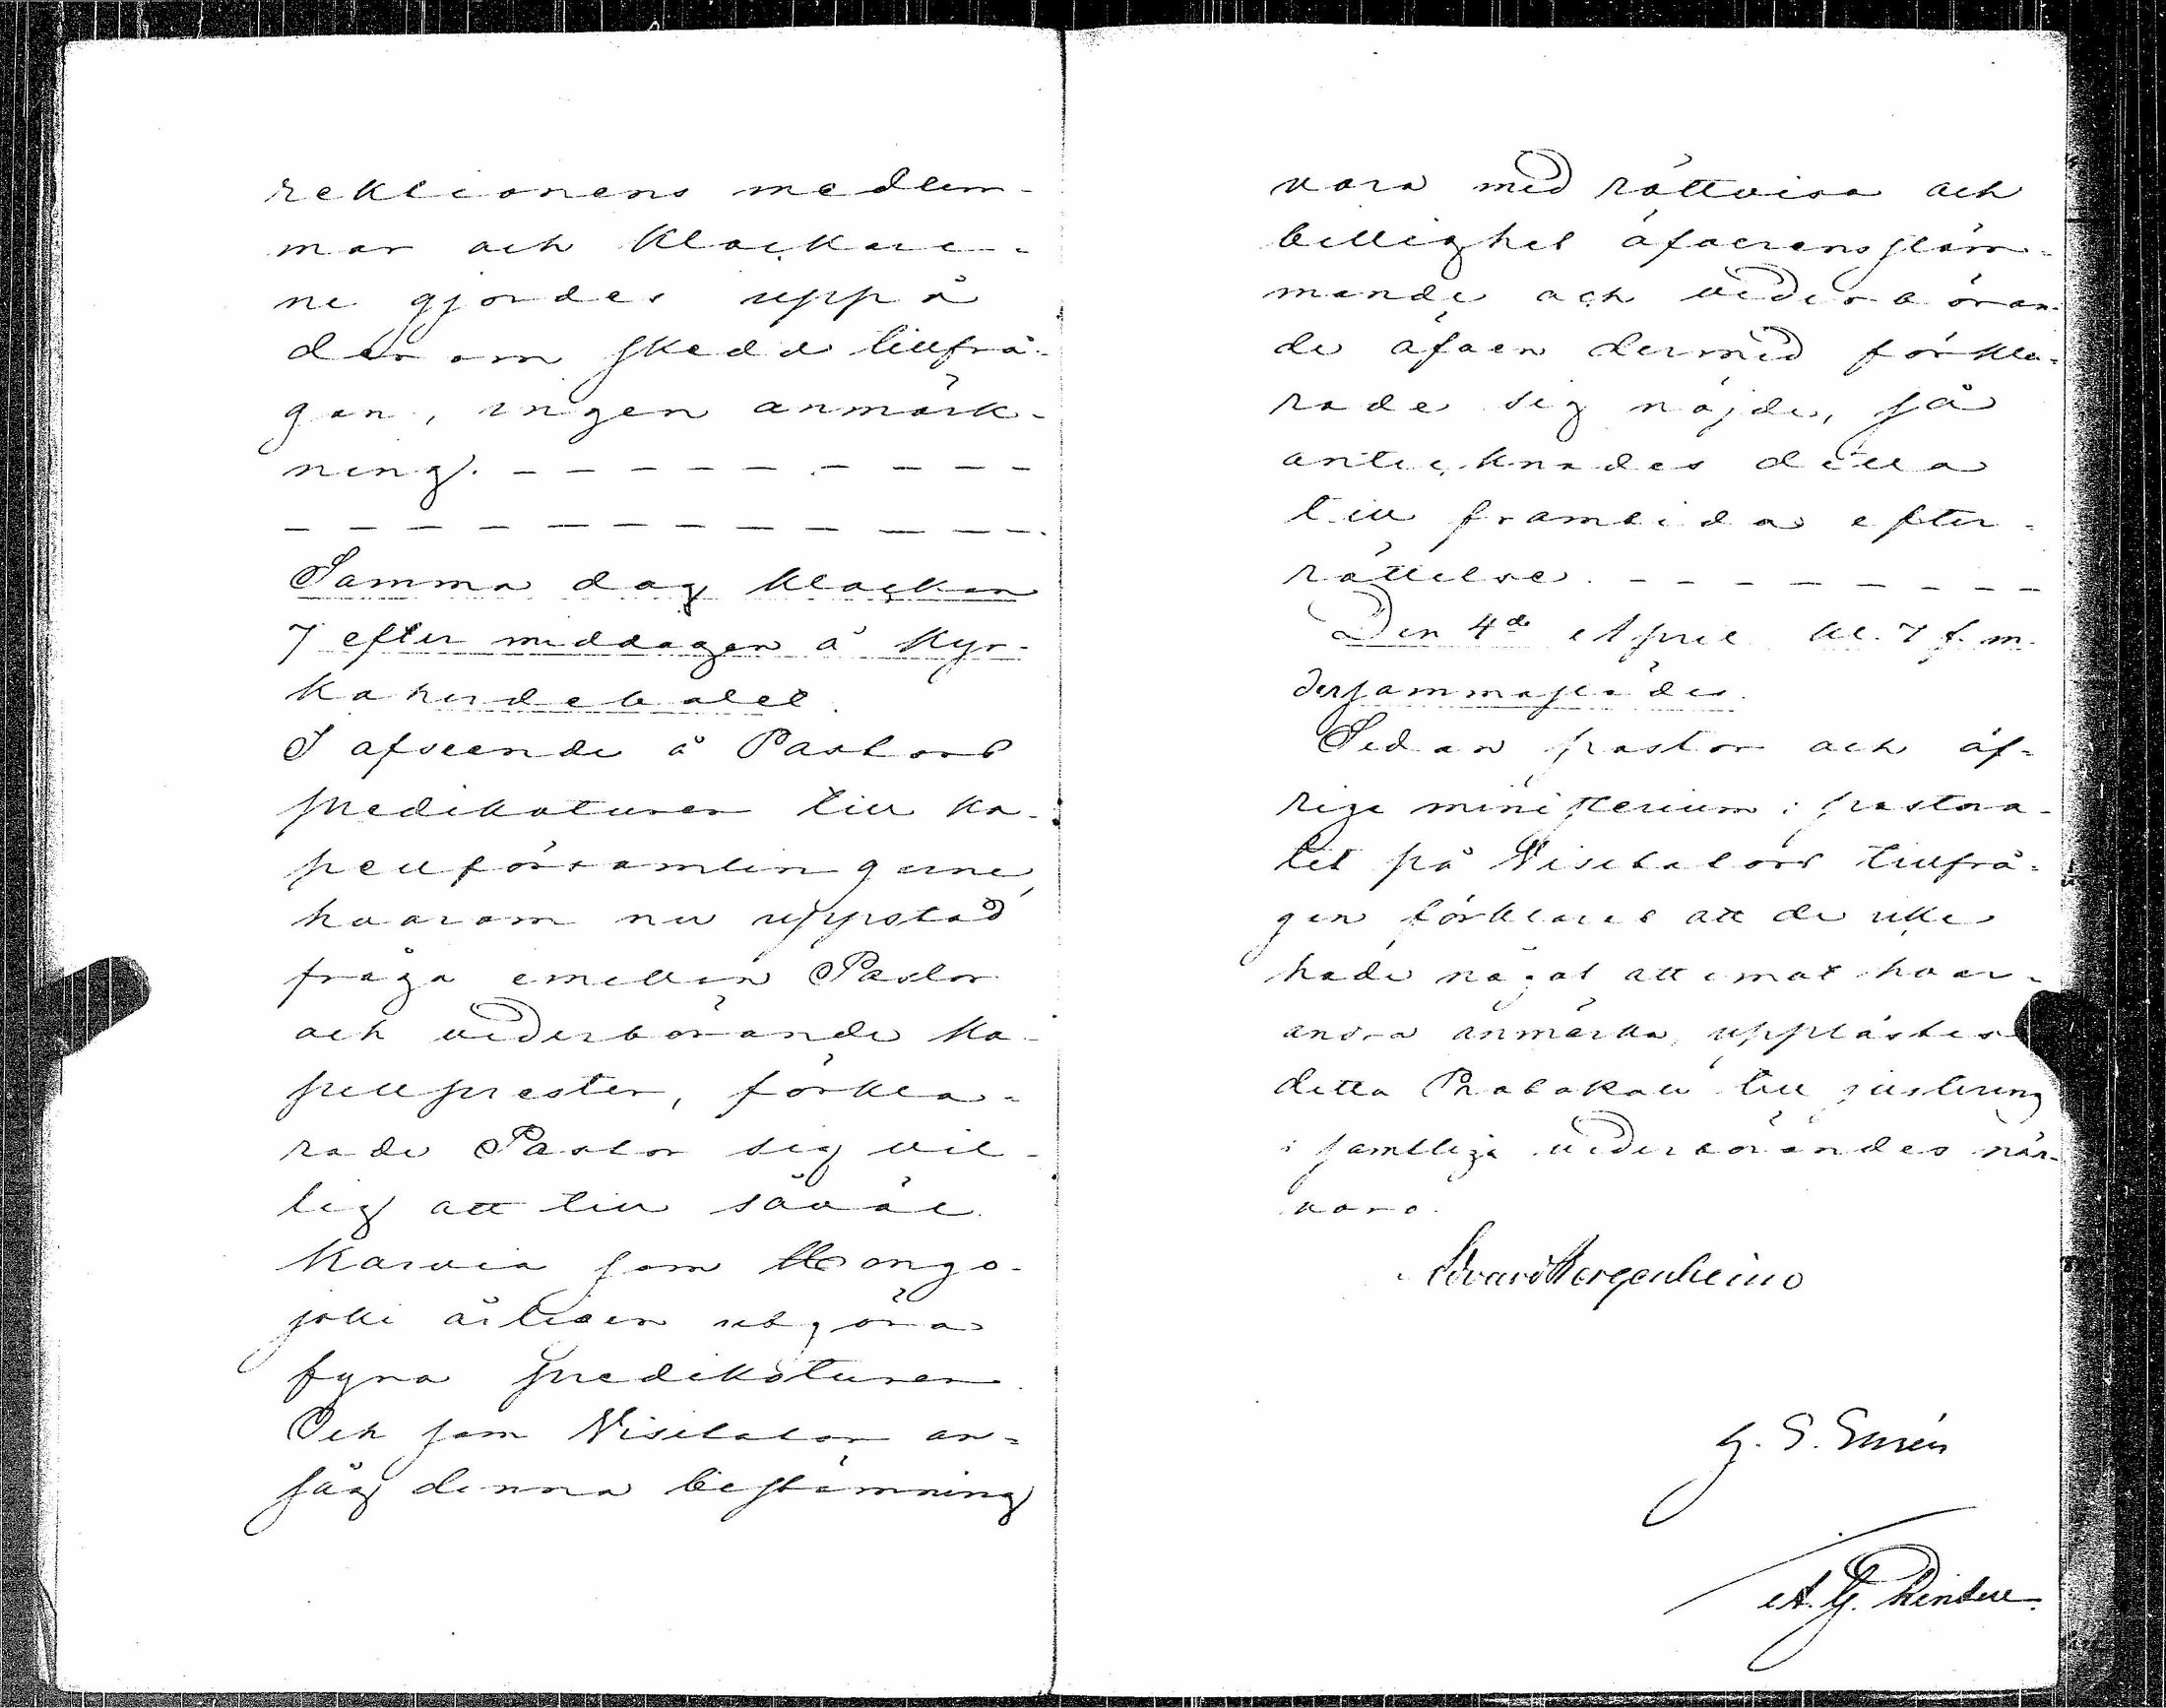 rektionens medlem-
mar och klockare-
ne gjordes uppå
derom skedd tillfrå-
gan, ingen anmärk-
ning. - - - - - - - -
- - - - - - - - - - -
Samma dag klockan
7 efter middagen å Kyr-
koherdebolet.
I afseende å Pastors
predikoturer till ka-
pellförsamlingarne,
hvarom nu uppstod
fråga emellan Pastor
och vederbörande ka-
pellprester, förkla-
rade Pastor sig vil-
lig att till såväl
Karvia som Hongo-
joki årligen utgöra
fyra predikoturer.
Och som Visitator an-
såg denna bestämning
vara med rättvisa och
billighet öfverensstäm-
mande och vederböran-
de äfven dermed förkla-
rade sig nöjde, så
antecknades detta
till framtida efter-
rättelse. - - - - - - -
Den 4de April kl. 7 f. m.
dersammastädes.
Sedan pastor och öf-
rige ministerium i pastora-
tet på Visitators tillfrå-
gan förklarat att de icke
hade något att emot hvar-
andra anmärka, upplästes
detta Protokoll till justering
i samtliga vederbörandes när-
varo.
Edvard Bergenheim
G. S.
A. G.